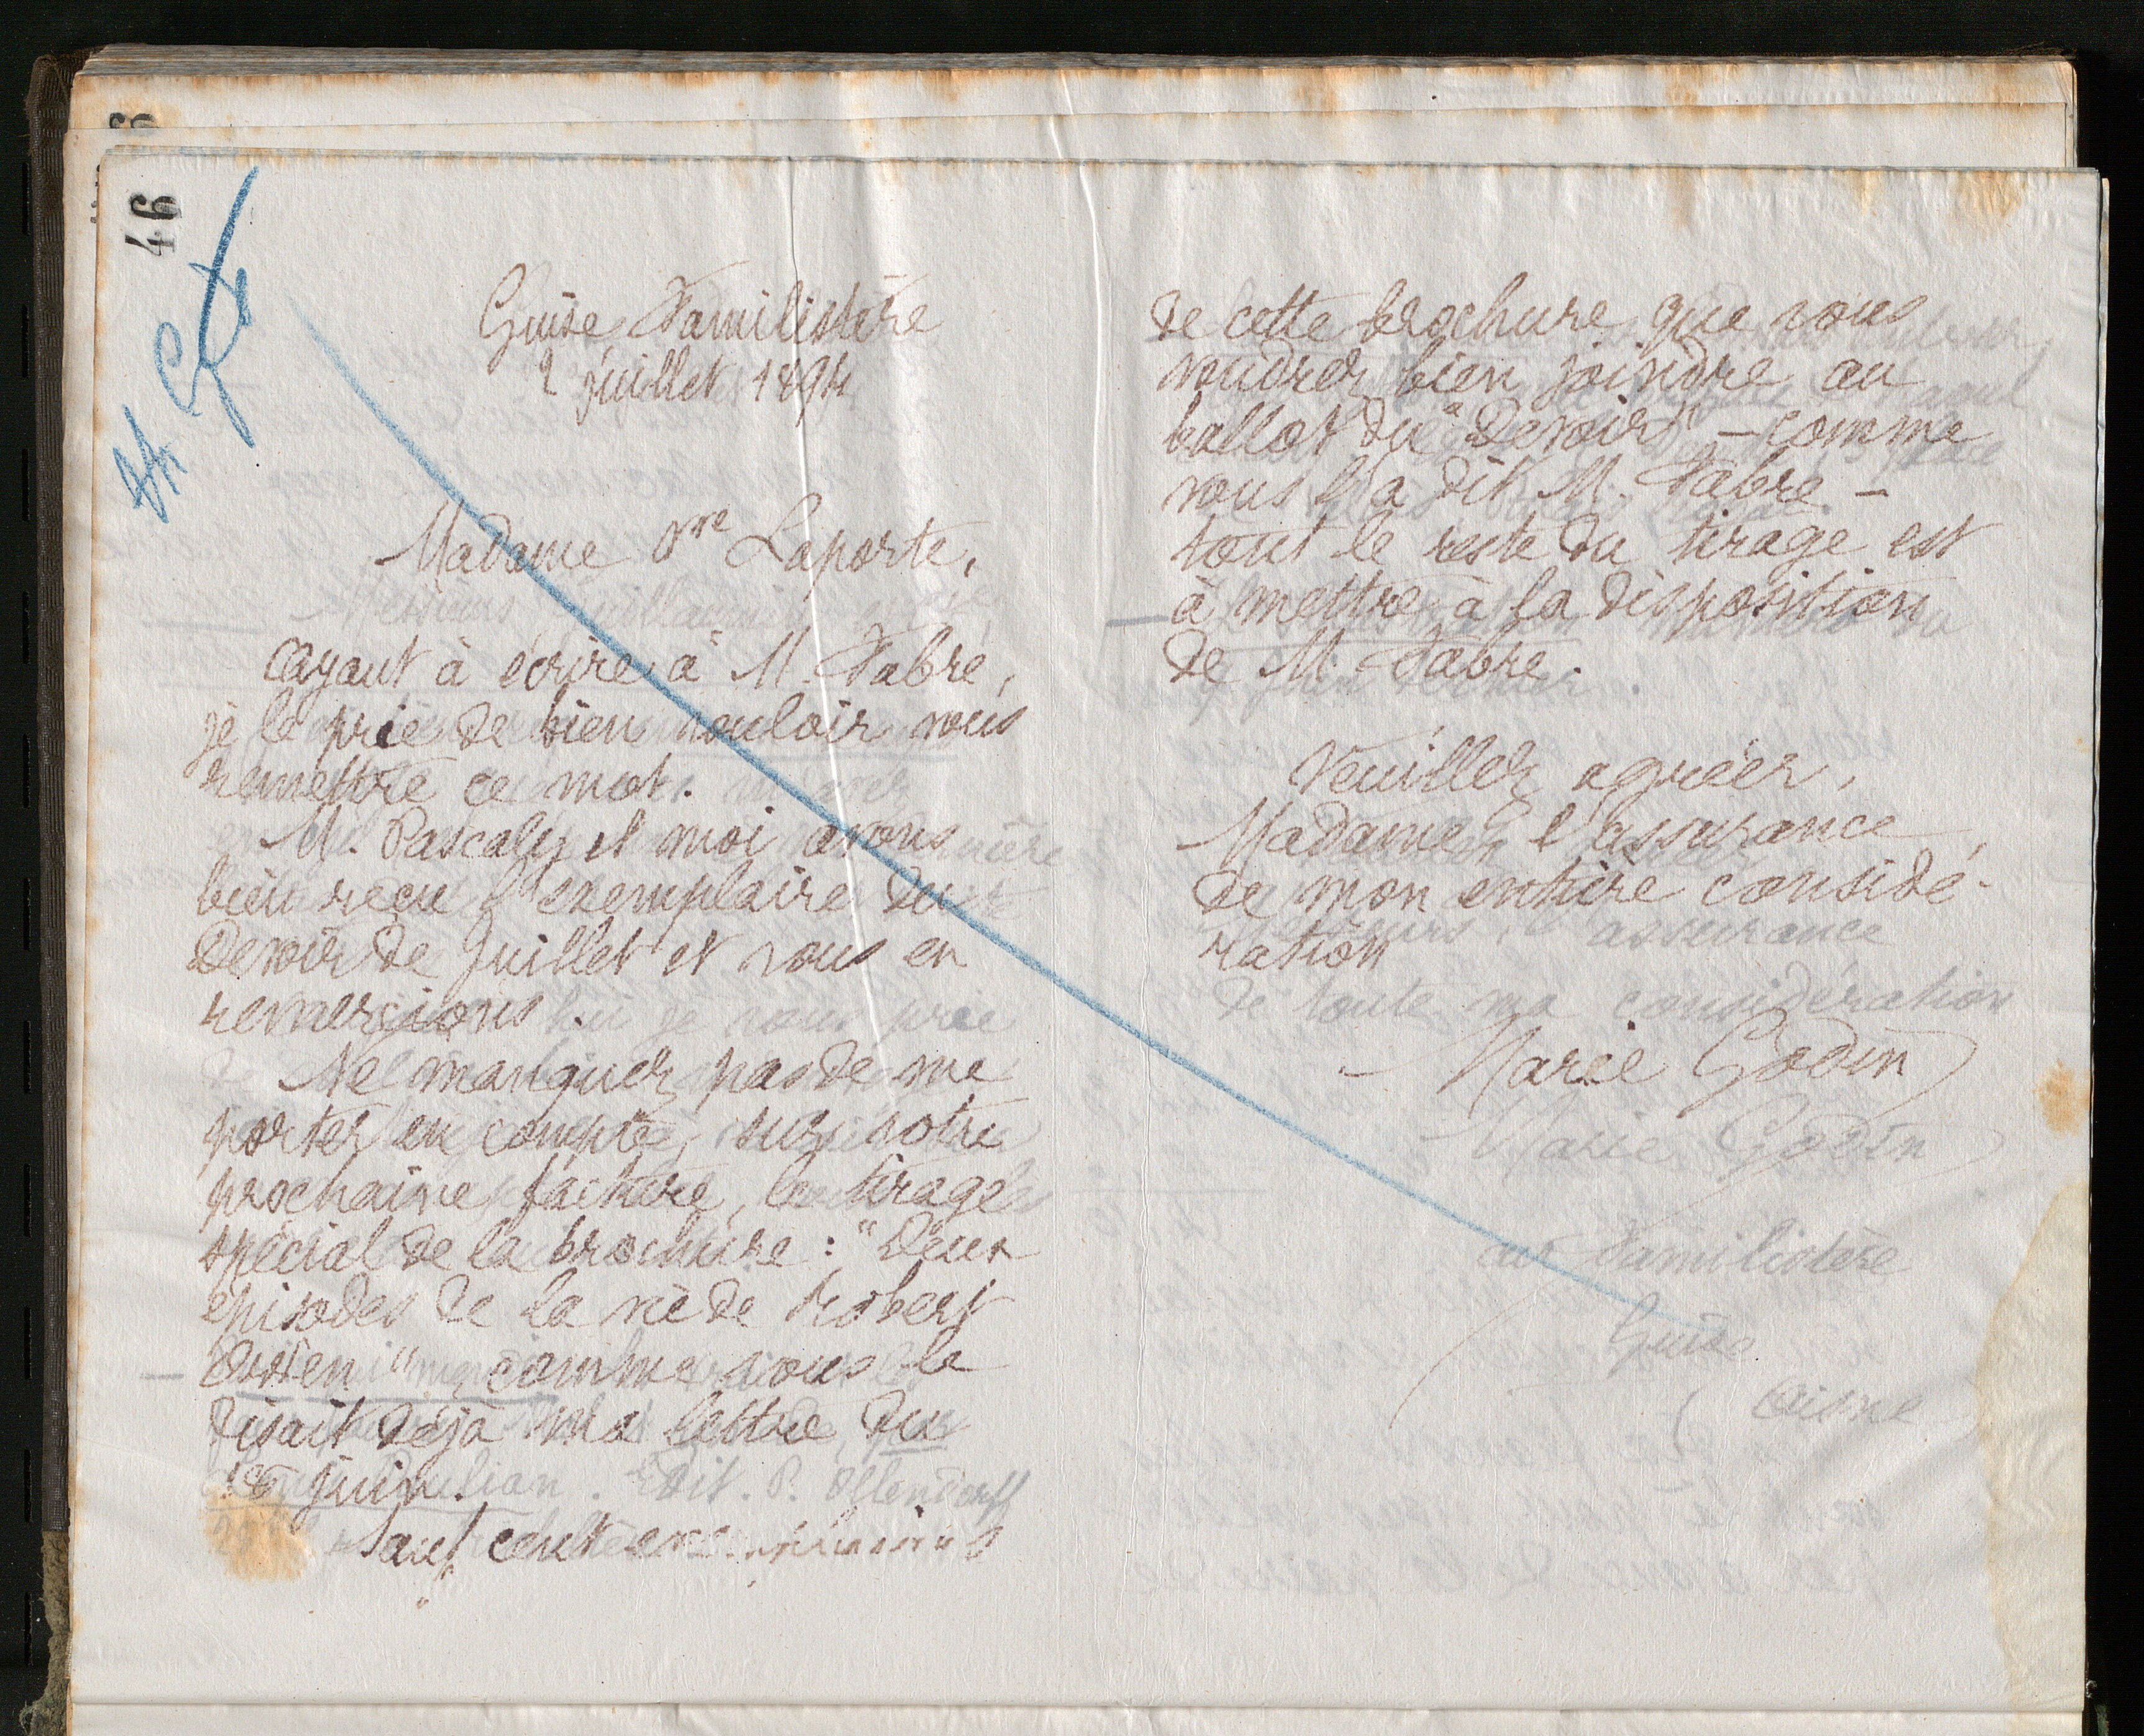 46
Guise Familistère
2 juillet 1894
Madame Vve Laporte,
Ayant à écrire à M. Fabre,
je le prie de bien vouloir vous
remettre ce mot.
M. Pascaly et moi avons
bien reçu l'exemplaire du
Devoir de Juillet et vous en
remercions.
Ne manquez pas de me
porter en compte, sur votre
prochaine facture, le tirage
spécial de la brochure : "Deux
épisodes de la vie de Robert
Owen" comme vous le
disait déjà ma lettre du
juin.
Sauf cent exemplaires
de cette brochure que vous
voudrez bien joindre au
ballot du "Devoir" - comme
vous l'a dit M. Fabre -
tout le reste du tirage est
à mettre à la disposition
de M. Fabre.
Veuillez agréer,
Madame, l'assurance
de mon entière considé-
ration
Marie Godin